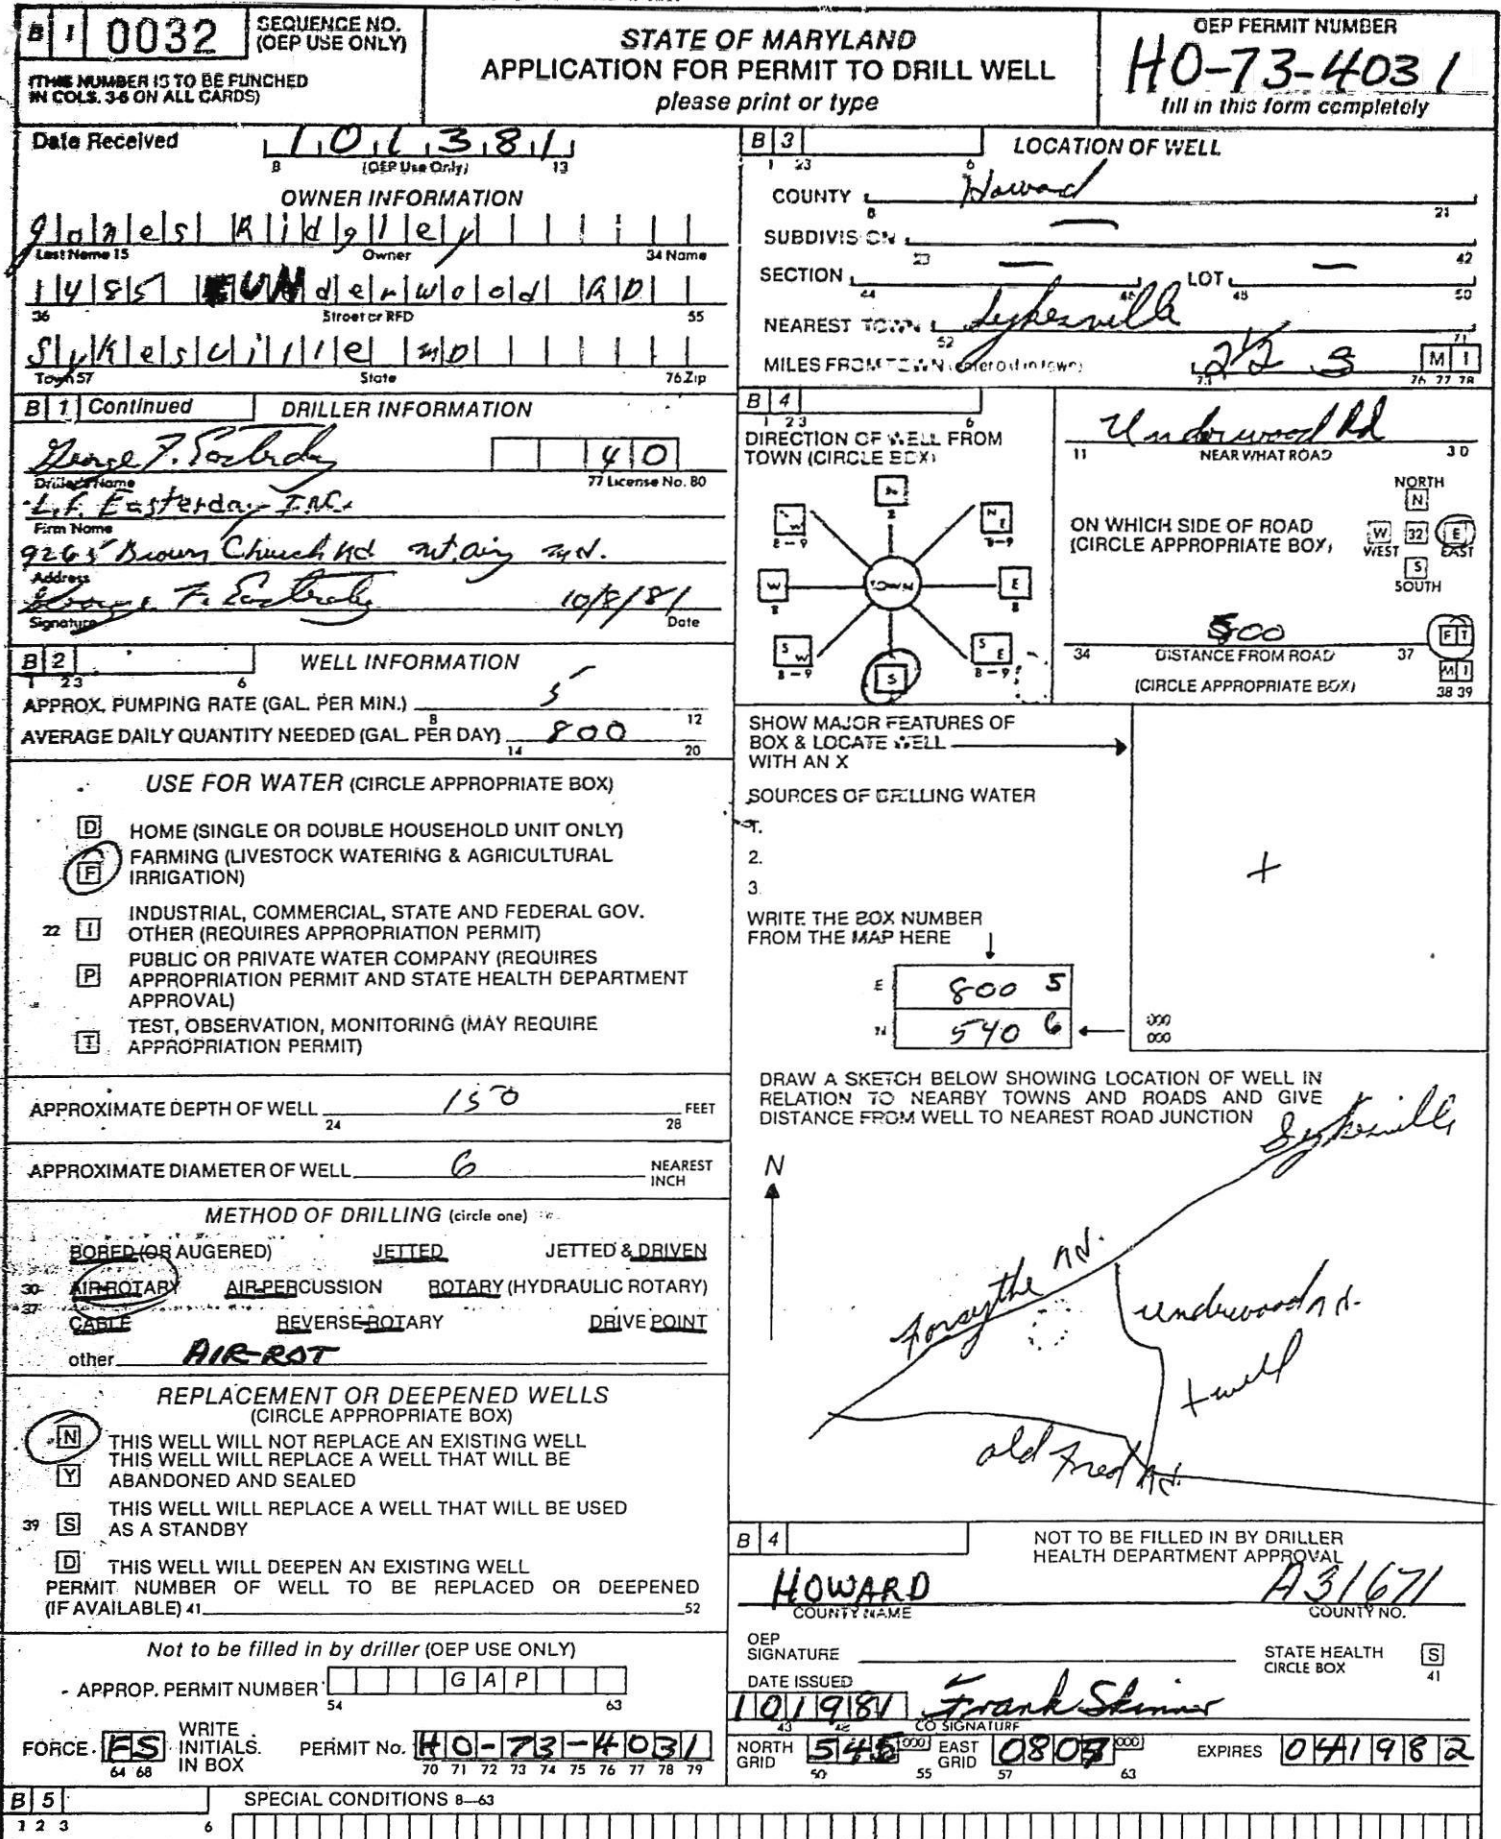 B 1 0032 SEQUENCE NO. (OEP USE ONLY)
(THIS NUMBER IS TO BE PUNCHED
IN COLS. 3-6 ON ALL CARDS)
STATE OF MARYLAND
APPLICATION FOR PERMIT TO DRILL WELL
please print or type
OEP PERMIT NUMBER
HO-73-4031
fill in this form completely
Date Received 101381
8 (OEP Use Only) 13
OWNER INFORMATION
Jones Ridgley
Last Name 15 Owner 34 Name
1485 UNderwood RD
36 Street or RFD 55
Sykesville MD
Town 57 State 76 Zip
B 1 Continued DRILLER INFORMATION
George F. Easterday 40
Driller's Name 77 License No. 80
L.F. Easterday INC.
Firm Name
9265 Brown Church Rd Mt. Airy Md.
Address
George F. Easterday 10/8/81
Signature Date
B 2 WELL INFORMATION
1 2 3 6
APPROX. PUMPING RATE (GAL. PER MIN.) 5
8 12
AVERAGE DAILY QUANTITY NEEDED (GAL. PER DAY) 800
14 20
USE FOR WATER (CIRCLE APPROPRIATE BOX)
D HOME (SINGLE OR DOUBLE HOUSEHOLD UNIT ONLY)
F FARMING (LIVESTOCK WATERING & AGRICULTURAL
IRRIGATION)
22 I INDUSTRIAL, COMMERCIAL, STATE AND FEDERAL GOV.
OTHER (REQUIRES APPROPRIATION PERMIT)
P PUBLIC OR PRIVATE WATER COMPANY (REQUIRES
APPROPRIATION PERMIT AND STATE HEALTH DEPARTMENT
APPROVAL)
T TEST, OBSERVATION, MONITORING (MAY REQUIRE
APPROPRIATION PERMIT)
APPROXIMATE DEPTH OF WELL 150 FEET
24 28
APPROXIMATE DIAMETER OF WELL 6 NEAREST
INCH
METHOD OF DRILLING (circle one)
BORED (OR AUGERED) JETTED JETTED & DRIVEN
30- AIR-ROTARY AIR-PERCUSSION ROTARY (HYDRAULIC ROTARY)
37 CABLE REVERSE-ROTARY DRIVE POINT
other AIR-ROT
REPLACEMENT OR DEEPENED WELLS
(CIRCLE APPROPRIATE BOX)
N THIS WELL WILL NOT REPLACE AN EXISTING WELL
THIS WELL WILL REPLACE A WELL THAT WILL BE
Y ABANDONED AND SEALED
THIS WELL WILL REPLACE A WELL THAT WILL BE USED
39 S AS A STANDBY
D THIS WELL WILL DEEPEN AN EXISTING WELL
PERMIT NUMBER OF WELL TO BE REPLACED OR DEEPENED
(IF AVAILABLE) 41 52
Not to be filled in by driller (OEP USE ONLY)
APPROP. PERMIT NUMBER G A P
54 63
FORCE FS WRITE INITIALS. IN BOX PERMIT No. HO-73-4031
64 68 70 71 72 73 74 75 76 77 78 79
B 3 LOCATION OF WELL
1 23 6
COUNTY Howard
8 21
SUBDIVISION —
23 42
SECTION — LOT —
44 46 48 50
NEAREST TOWN Sykesville
52 71
MILES FROM TOWN (enter 0 if in town) 2 1/2 3 M I
73 76 77 78
B 4
1 2 3 6
DIRECTION OF WELL FROM
TOWN (CIRCLE BOX)
N
8
N W
8-9
N E
8-9
W
8
TOWN
E
8
S W
8-9
S
S E
8-9
Underwood Rd
11 NEAR WHAT ROAD 30
ON WHICH SIDE OF ROAD
(CIRCLE APPROPRIATE BOX)
NORTH
N
W 32 E
WEST EAST
S
SOUTH
500 F T
34 DISTANCE FROM ROAD 37
(CIRCLE APPROPRIATE BOX) M I
38 39
SHOW MAJOR FEATURES OF
BOX & LOCATE WELL
WITH AN X
SOURCES OF DRILLING WATER
1.
2.
3.
WRITE THE BOX NUMBER
FROM THE MAP HERE
E 800 5
N 540 6
000
000
DRAW A SKETCH BELOW SHOWING LOCATION OF WELL IN
RELATION TO NEARBY TOWNS AND ROADS AND GIVE
DISTANCE FROM WELL TO NEAREST ROAD JUNCTION
Sykesville
N
Forsythe Rd.
Underwood Rd.
+ well
old Fred Rd.
B 4 NOT TO BE FILLED IN BY DRILLER
HEALTH DEPARTMENT APPROVAL
HOWARD A31671
COUNTY NAME COUNTY NO.
OEP
SIGNATURE STATE HEALTH
CIRCLE BOX S
41
DATE ISSUED
101981 Frank Skinner
43 48 CO SIGNATURE
NORTH GRID 545 000 EAST GRID 0805 000 EXPIRES 041982
50 55 57 63
B 5 SPECIAL CONDITIONS 8-63
1 2 3 6